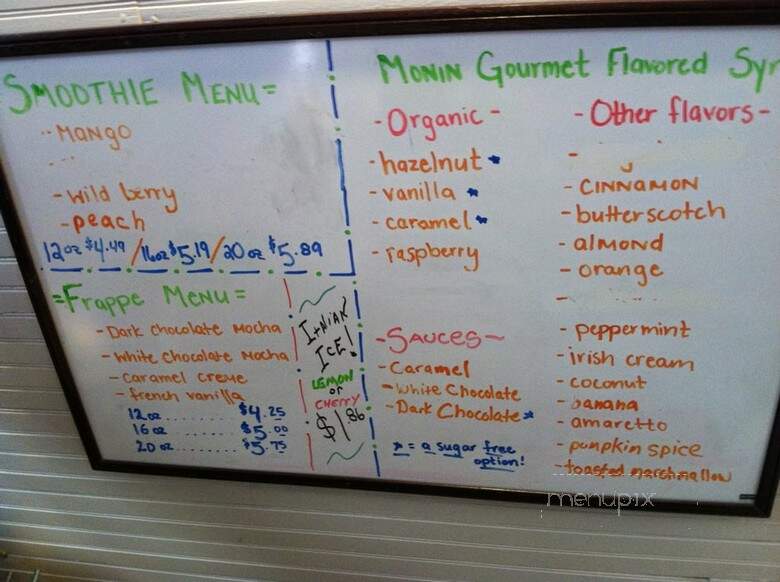 SMOOTHIE MENU=
-Mango
-wild berry
-peach
12oz $4.49/16oz $5.19/20oz $5.89
=Frappe Menu=
-Dark Chocolate Mocha
-White Chocolate Mocha
-Caramel Creme
-french vanilla
12oz.......... $4.25
16oz ........ $5.00
20oz ........ $5.75
ItNiAN
ICE!
LEMON
or
CHERRY
$1.86
MONIN Gourmet Flavored
-Organic-
-hazelnut*
-vanilla *
-caramel*
-raspberry
-SAUCES-
-Caramel
-White Chocolate
-Dark Chocolate*
* = a sugar free
option!
-Other flavors-
-CINNAMON
-butterscotch
-almond
-orange
-peppermint
-irish cream
-coconut
-banana
-amaretto
-pumpkin spice
-toasted marshmallow
menupix